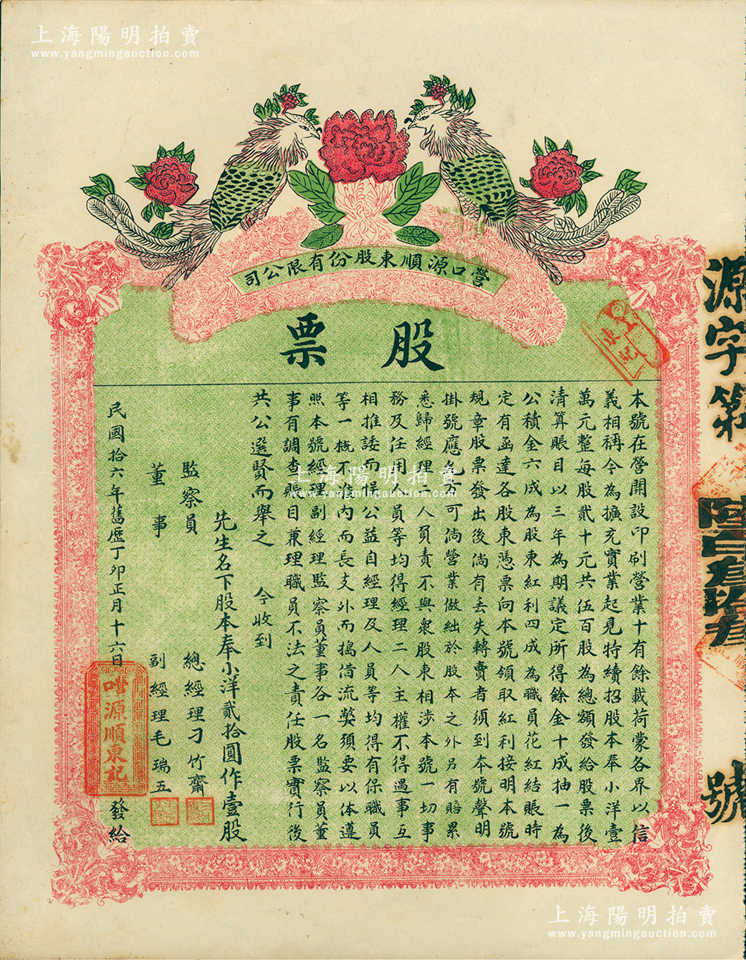 上海陽明拍賣
www.yangmingauction.com
上海陽明拍賣
www.yangmingauction.com
營口源順東股份有限公司
股票
本號在營開設印刷營業十有餘載荷蒙各界以信
義相稱今為擴充實業起見特續招股本奉小洋壹
萬元整每股貳十元共伍百股為總額發給股票後
清算賬目以三年為期議定所得餘金十成抽一為
公積金六成為股東紅利四成為職員花紅結賬時
定有函達各股東憑票向本號領取紅利接明本號
規章股票發出後倘有丢失轉賣者須到本號聲明
掛號應允方可倘營業做絀於股本之外另有賠累
悉歸經理人員責不與衆股東相涉本號一切事
務及任用人員等均得經理二人主權不得遇事互
相推諉而損公益自經理及人員等均得有保職員
等一概不准內而長支外而搗借流獘須要以体遵
照本號經理副經理監察員董事各一名監察員董
事有調查賬目兼理職員不法之責任股票實行後
共公選賢而舉之 今收到
先生名下股本奉小洋貳拾圓作壹股
監察員 總經理刁竹齋
董事 副經理毛瑞五
民國拾六年舊歷丁卯正月十六日 發給
源順東記
源字第
號
上海陽明拍賣
www.yangmingauction.com
上海陽明拍賣
www.yangmingauction.com